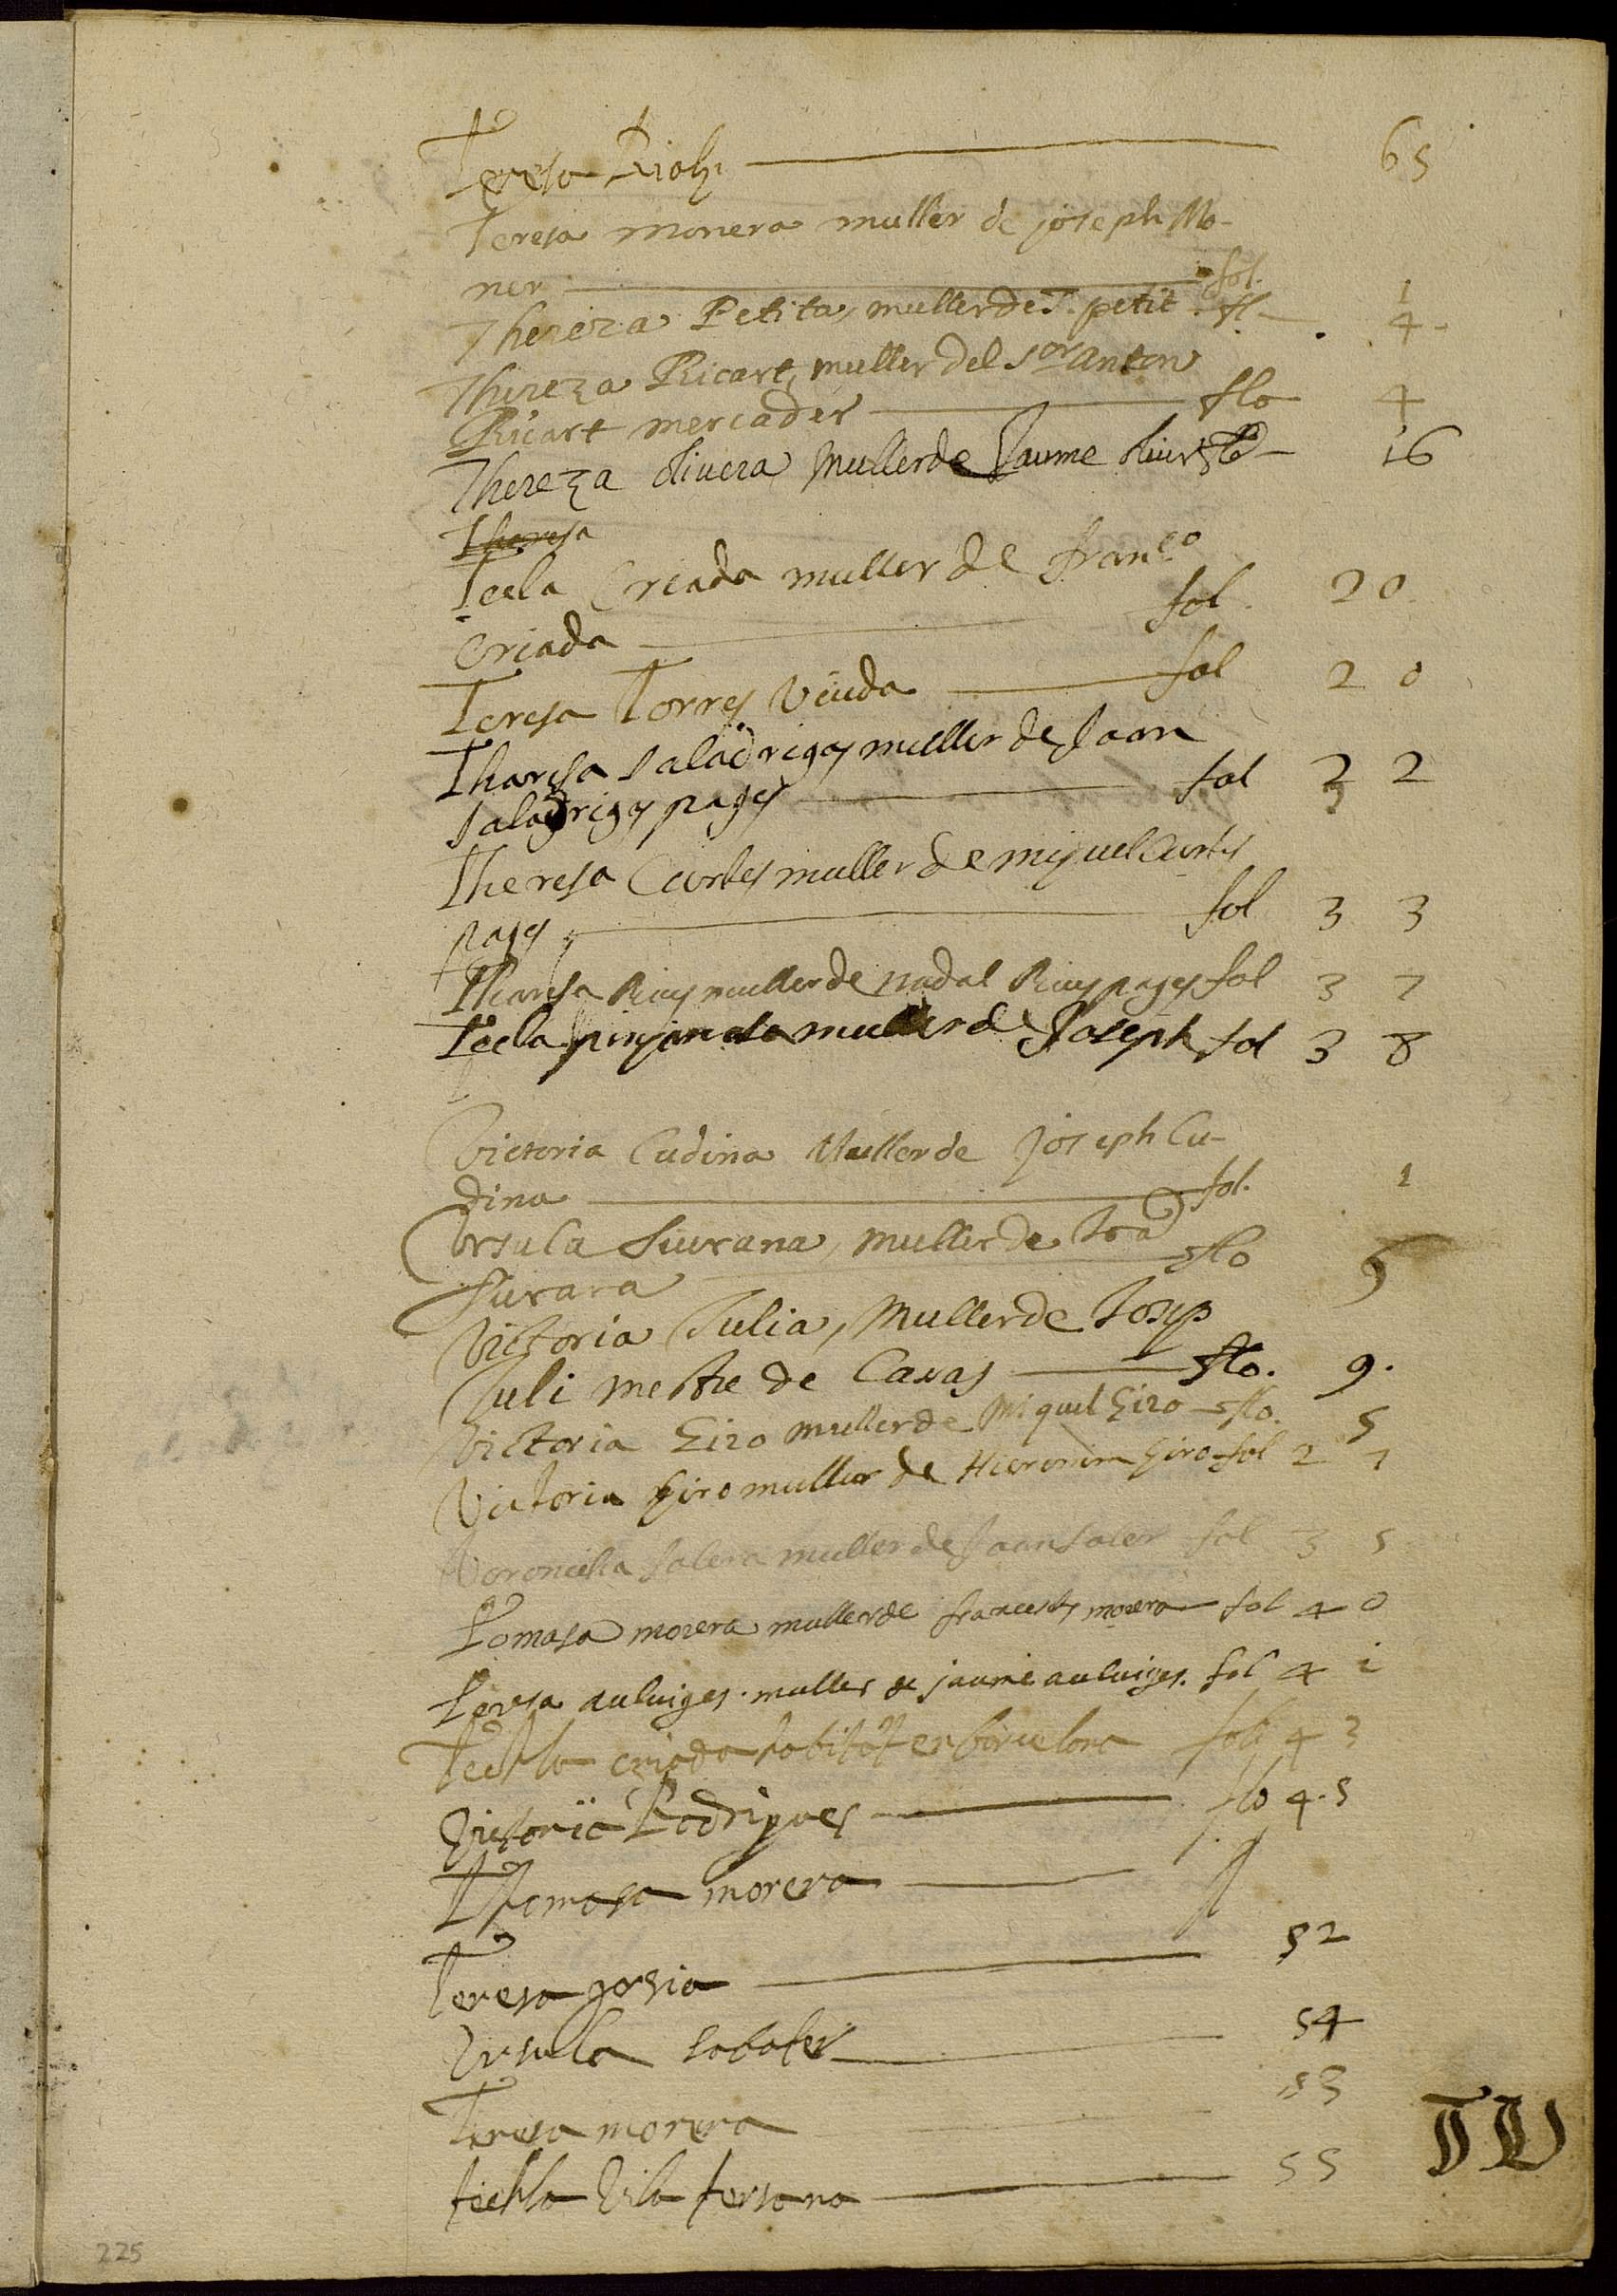 Teresa Riols 65
Teresa monera muller de joseph Mo-
ner fol. 1
Thereza Petita, muller de J. petit. fl. 4
Thereza Ricart, muller del Sor Anton
Ricart mercader flo 4
Thereza Olivera Muller de Jaume Oliver flo 16
Theresa
Tecla Criada muller de Franco
Criada fol. 20
Teresa Torres Viuda fol 20
Tharesa Saladrigas muller de Joan
Saladrigas pages fol 32
Theresa Cortes muller de miquel Cortes
pages fol 33
Tharesa Rius muller de nadal Rius pages fol 37
Tecla muller de Joseph fol 38
Victoria Cudina Muller de Joseph Cu-
dina fol. 1
Vrsula Siurana, muller de
Siurana flo 5
Victoria Julia, Muller de Josep
Juli mestre de Casas flo. 9.
Victoria Giro muller de Miquel Giro flo. 5
Victoria Giro muller de Hieronim Giro fol 21
Solera muller de Joan Soler fol 35
Tomasa morera muller de morera fol 40
Teresa auluiges. muller de jaume auluiges. fol 4i
Teckla criada habitat en barcelona foli 43
Victoria Rodrigues flo 4.5
Thomasa morera
Teresa gorsia 52
Vrsula Sabater 54
Teresa morera 53
teckla Vila 55
TV
225